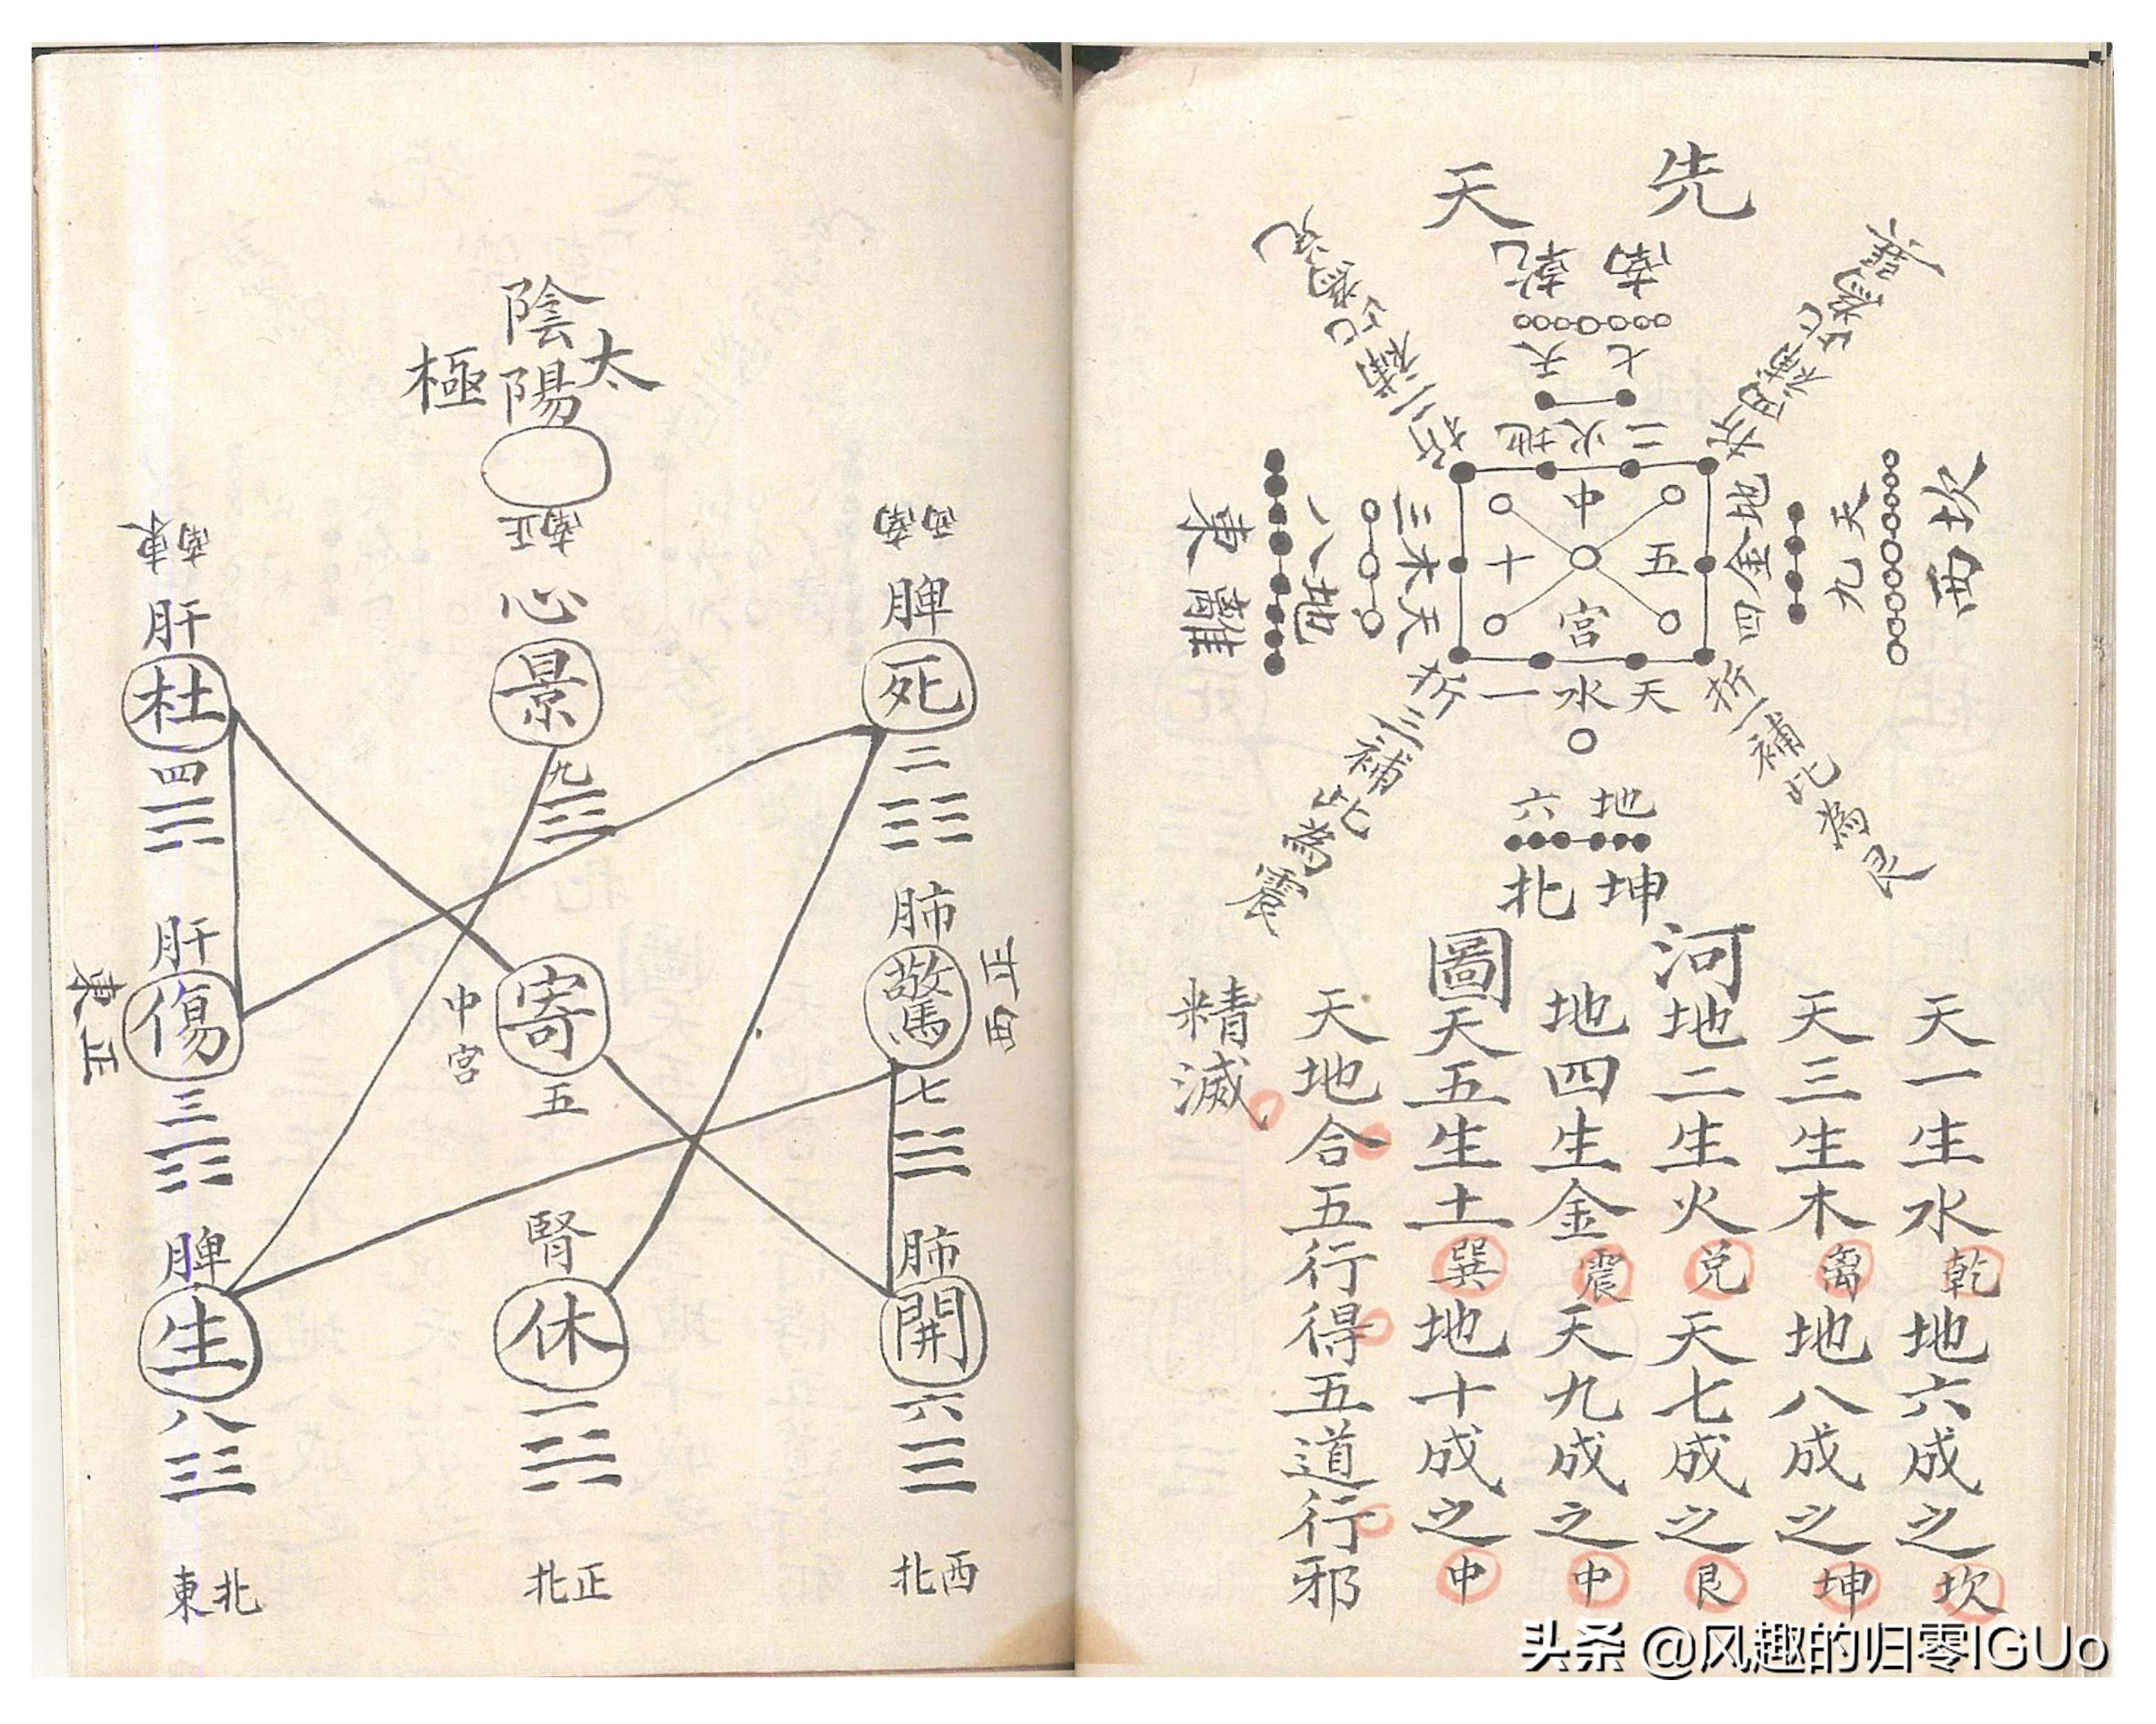 先天
南乾
七天
二火地
中
五
十
宮
地金四
天九
坎西
三木天
八地
東離
天水一
地六
坤北
折一補比為艮
折三補比為震
河圖
天一生水乾地六成之坎
天三生木离地八成之坤
地二生火兌天七成之艮
地四生金震天九成之中
天五生土巽地十成之中
天地合五行得五道行邪
精滅
陰陽
太極
正南
心
景
九
西南
脾
死
二
東南
肝
杜
四
肺
驚
七
正西
中宮
寄
五
肝
傷
三
東正
肺
開
六
西北
腎
休
一
正北
脾
生
八
北東
头条 @风趣的归零IGUo